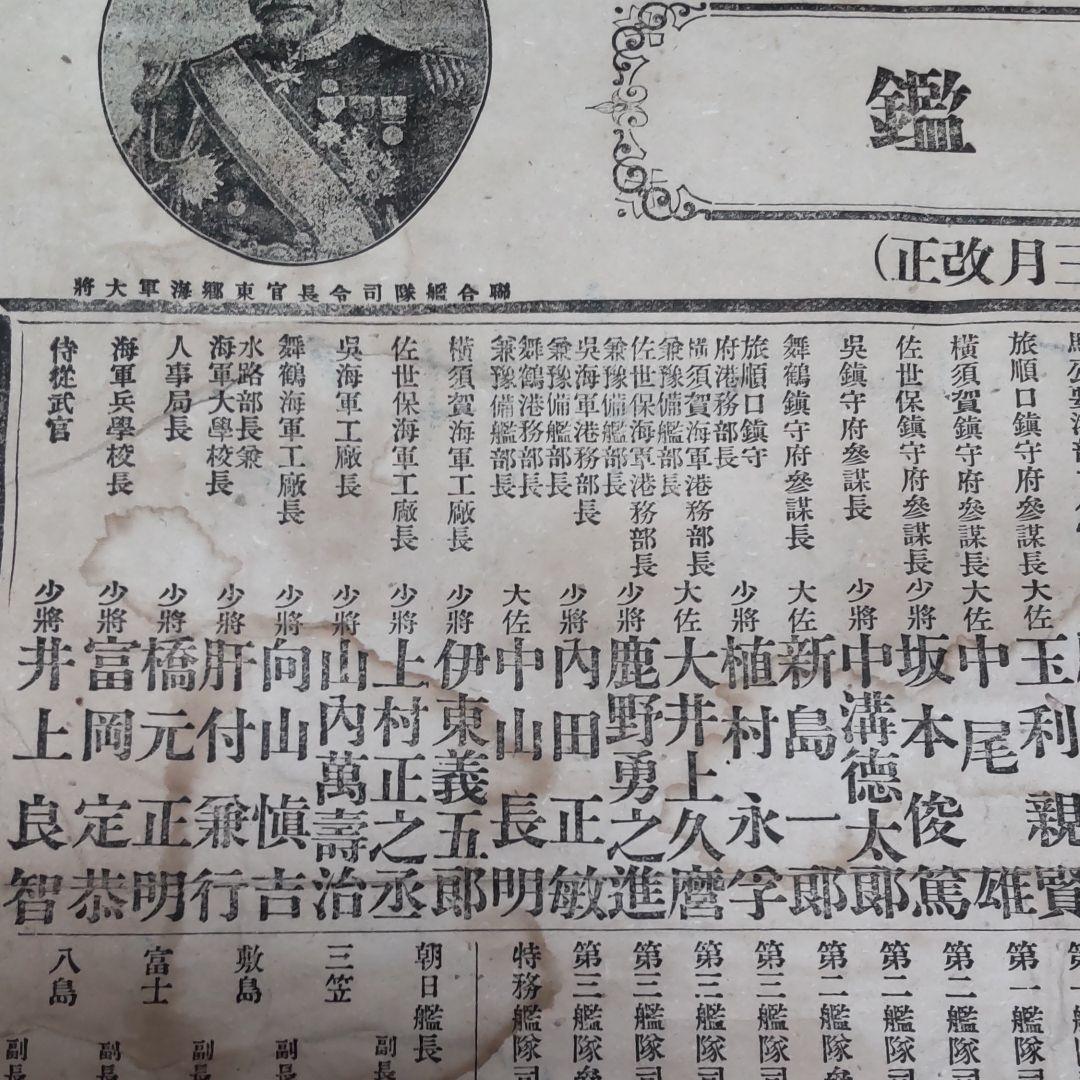 鑑
三月改正)
聯合艦隊司令長官東鄉海軍大將
旅順口鎮守府參謀長 大佐 玉利親賢
橫須賀鎮守府參謀長 大佐 中尾雄
佐世保鎮守府參謀長 少將 坂本俊篤
吳鎮守府參謀長 少將 中溝德太郎
舞鶴鎮守府參謀長 大佐 新島一郎
旅順口鎮守府港務部長 少將 植村永孚
橫須賀海軍港務部長兼豫備艦部長 大佐 大井上久麿
佐世保海軍港務部長兼豫備艦部長 少將 鹿野勇之進
吳海軍港務部長兼豫備艦部長 少將 內田正敏
舞鶴港務部長兼豫備艦部長 大佐 中山長明
橫須賀海軍工廠長 少將 伊東義五郎
佐世保海軍工廠長 少將 上村正之丞
吳海軍工廠長 少將 山內萬壽治
舞鶴海軍工廠長 少將 向山愼吉
水路部長兼海軍大學校長 少將 肝付兼行
人事局長 少將 橋元正明
海軍兵學校長 少將 富岡定恭
侍從武官 少將 井上良智
第一艦隊
第二艦隊司
第二艦隊司
第二艦隊參
第三艦隊司
第三艦隊司
第三艦隊司
第三艦隊參
特務艦隊司
朝日艦長 副長
三笠 副長
敷島 副長
富士 副長
八島 副長